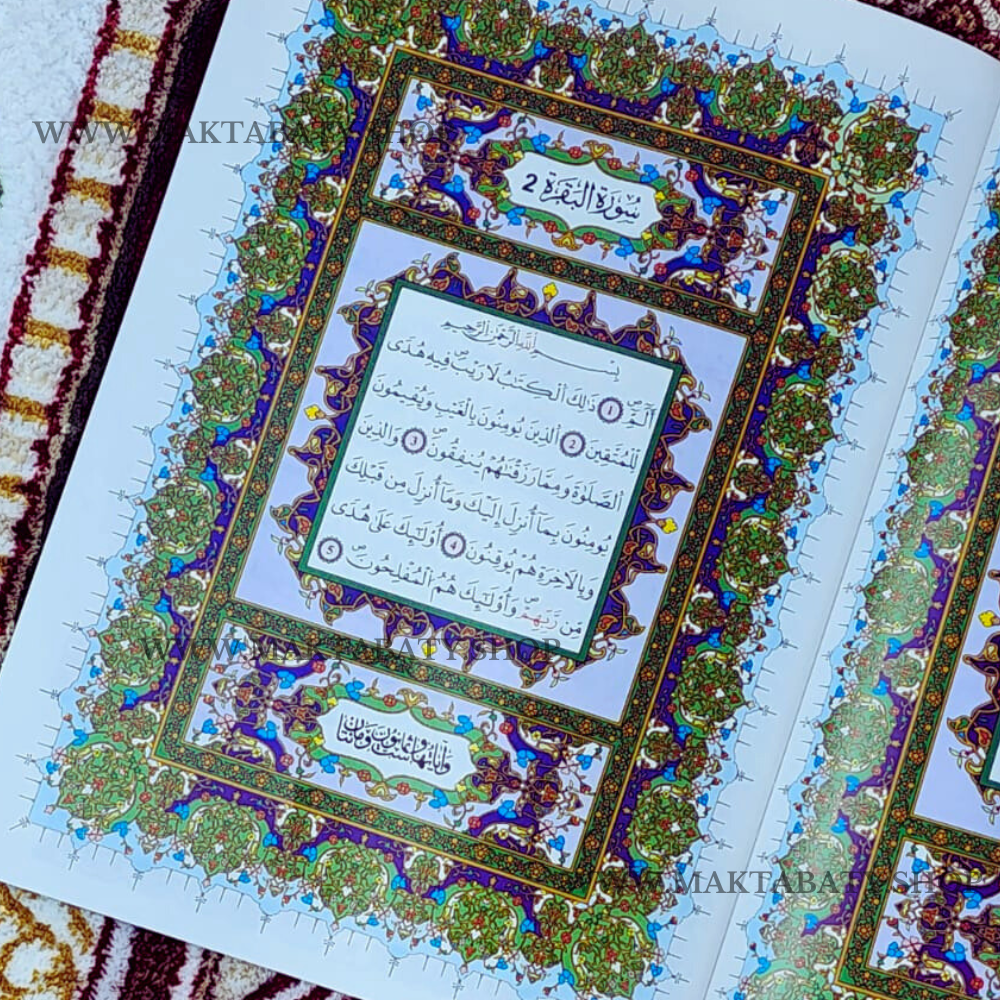 WWW.MAKTABATY.SHOP
سُورَةُ الْبَقَرَةِ 2
بِسْمِ اللَّهِ الرَّحْمَٰنِ الرَّحِيمِ
أَلَٓمِّٓۖ 1 ذَٰلِكَ اَلْكِتَٰبُ لَا رَيْبَۖ فِيهِ هُدىٗ
لِّلْمُتَّقِينَ 2 اَلذِينَ يُومِنُونَ بِالْغَيْبِ وَيُقِيمُونَ
اَلصَّلَوٰةَ وَمِمَّا رَزَقْنَٰهُمْ يُنفِقُونَۖ 3 وَالذِينَ
يُومِنُونَ بِمَآ أُنزِلَ إِلَيْكَ وَمَآ أُنزِلَ مِن قَبْلِكَ
وَبِالَاخِرَةِ هُمْ يُوقِنُونَۖ 4 أُوْلَٰٓئِكَ عَلَىٰ هُدىٗ
مِّن رَّبِّهِمْۖ وَأُوْلَٰٓئِكَ هُمُ اُلْمُفْلِحُونَۖ 5
WWW.MAKTABATY.SHOP
وَءَايَاتُهَا سِتٌّ وَثَمَانُونَ وَمِائَتَانِ
WWW.MAKTABATY.SHOP